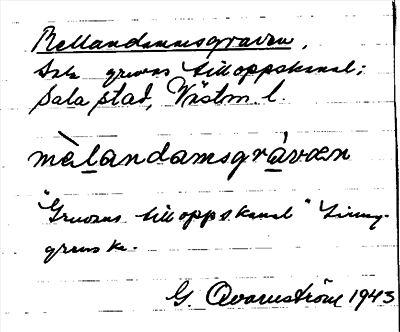 Mellandammsgraven,
Sala gruvas tilloppskanal;
Sala stad, Västm. l.
mèlandamsgrávœn
"Gruvans tilloppskanal"
G. Qvarnström 1943